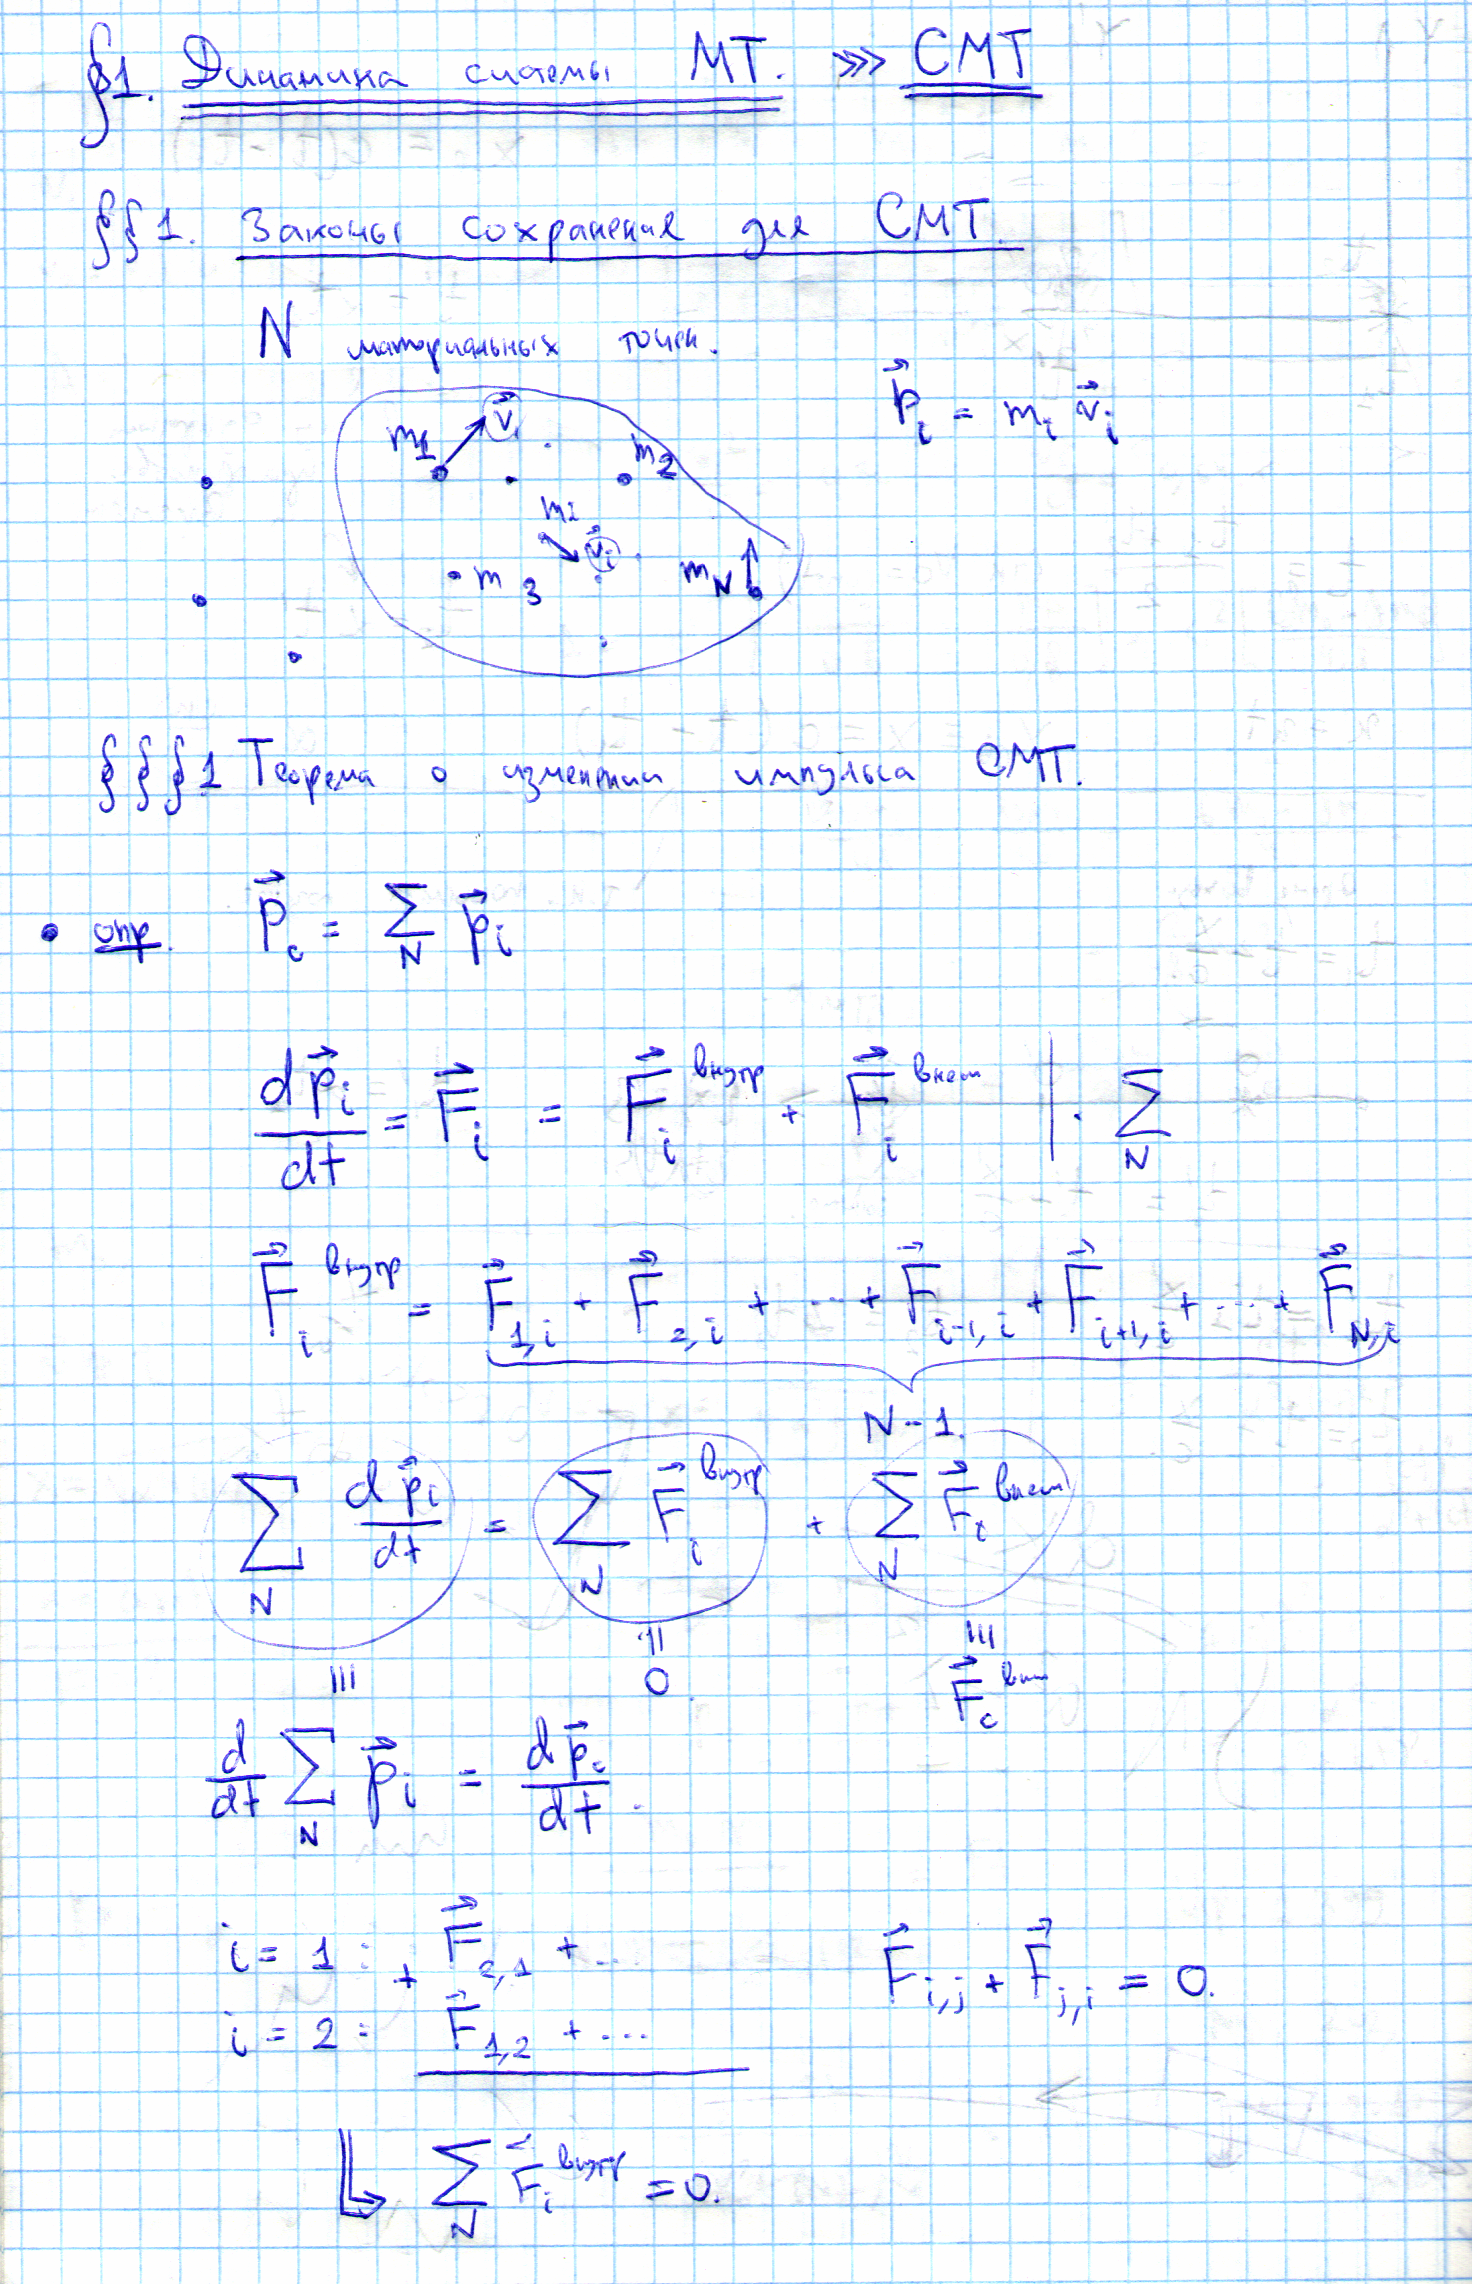 §1. Динамика системы МТ. >>> СМТ
§§1. Законы сохранения для СМТ.
N материальных точек.
m₁ v⃗₁ m₂
p⃗ᵢ = mᵢ v⃗ᵢ
mᵢ v⃗ᵢ
m₃ m_N
§§§1 Теорема о изменении импульса СМТ.
• опр. P⃗_c = Σ_N p⃗ᵢ
dp⃗ᵢ/dt = F⃗ᵢ = F⃗ᵢ^внутр + F⃗ᵢ^внеш | · Σ_N
F⃗ᵢ^внутр = F⃗_1,i + F⃗_2,i + ... + F⃗_i-1,i + F⃗_i+1,i + ... + F⃗_N,i
N-1.
Σ_N dp⃗ᵢ/dt = Σ_N F⃗ᵢ^внутр + Σ_N F⃗ᵢ^внеш
||| || |||
0 F⃗_c^вн
d/dt Σ_N p⃗ᵢ = dp⃗_c/dt.
i = 1: + F⃗_2,1 + ...
F⃗_i,j + F⃗_j,i = 0.
i = 2: F⃗_1,2 + ...
Σ_N F⃗ᵢ^внутр = 0.